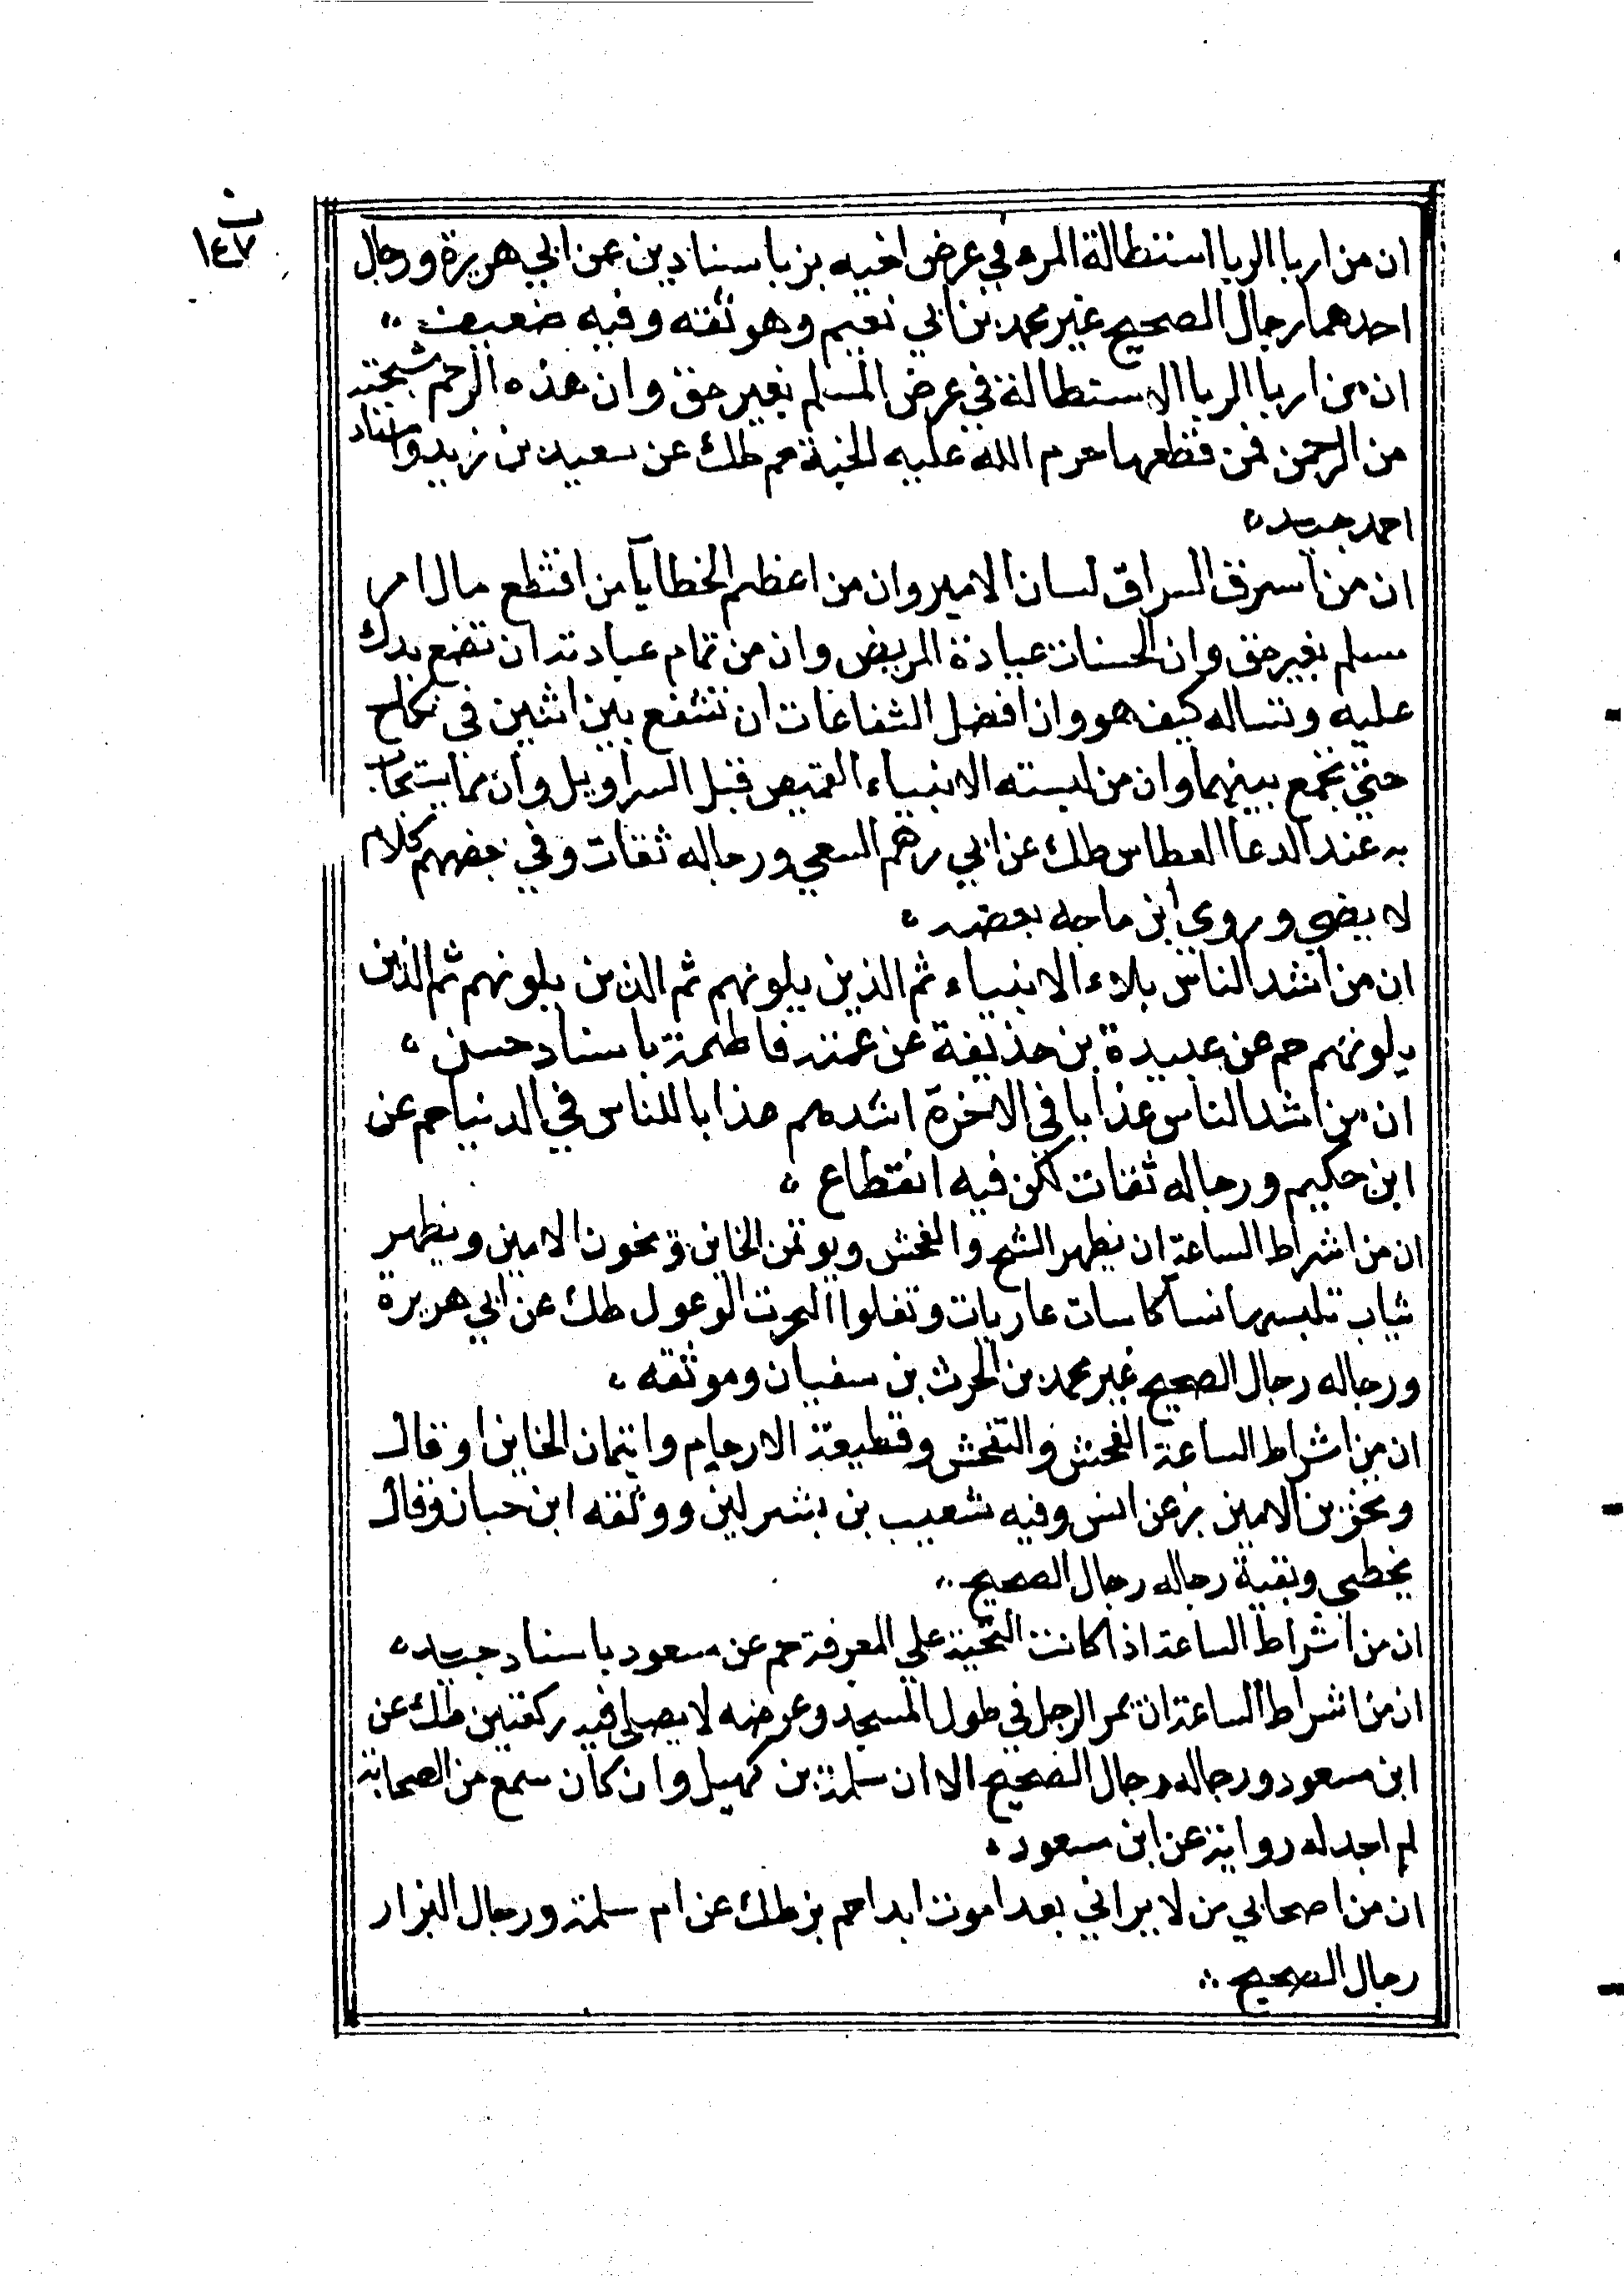 ن
١٤٧
ان من اربا الربا استطالة المرء في عرض اخيه بز باسنادين عن ابي هريرة ورجال
احدهما رجال الصحيح غير محمد بن ابي نعيم وهو ثقه وفيه ضعيف
ان من اربا الربا الاستطالة في عرض المسلم بغير حق وان هذه الرحم شجنة
من الرحمن فمن قطعها حرم الله عليه الجنة حم طك عن سعيد بن زيد واسناد
احمد جيد
ان من اسرق السراق لسان الامير وان من اعظم الخطايا من اقتطع مال امر
مسلم بغير حق وان الحسنات عيادة المريض وان من تمام عيادته ان تضع يدك
عليه وتساله كيف هو وان افضل الشفاعات ان تشفع بين اثنين في نكاح
حتي تجمع بينهما وان من لبسته الانبياء القميص قبل السراويل وان مما يستجاب
به عند الدعا العطاس طك عن ابي رهم السمعي ورجاله ثقات وفي بعضهم كلام
لا يضر وروي ابن ماجه بعضه
ان من اشد الناس بلاء الانبياء ثم الذين يلونهم ثم الذين يلونهم ثم الذين
يلونهم حم عن عبيدة بن حذيفة عن عمته فاطمة باسناد حسن
ان من اشد الناس عذابا في الاخرة اشدهم عذابا للناس في الدنيا حم عن
ابن حكيم ورجاله ثقات لكن فيه انقطاع
ان من اشراط الساعة ان يظهر الشح والفحش ويوتمن الخاين ويخون الامين ويظهر
ثياب تلبسها نسا كاسات عاريات وتعلوا التحوت الوعول طك عن ابي هريرة
ورجاله رجال الصحيح غير محمد بن الحرث بن سفيان وهو ثقه
ان من اشراط الساعة الفحش والتفحش وقطيعة الارحام وايتمان الخاين او قال
وتخوين الامين بز عن انس وفيه شعيب بن بشر لين ووثقه ابن حبان وقال
يخطي وبقية رجاله رجال الصحيح
ان من اشراط الساعة اذا كانت التحية علي المعرفة حم عن مسعود باسناد جيد
ان من اشراط الساعة ان يمر الرجل في طول المسجد وعرضه لا يصلي فيه ركعتين طك عن
ابن مسعود ورجاله رجال الصحيح الا ان سلمة بن كهيل وان كان سمع من الصحابة
لم اجد له رواية عن ابن مسعود
ان من اصحابي من لا يراني بعد اموت ابدا حم بز طك عن ام سلمة ورجال البزار
رجال الصحيح